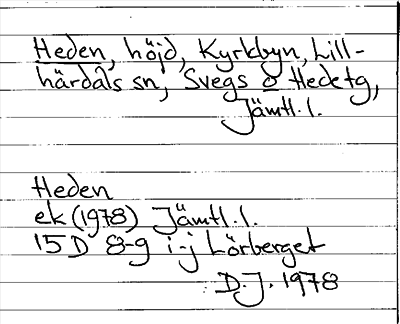 Heden, höjd, Kyrkbyn, Lill-
härdals sn, Svegs o Hedetg,
Jämtl. l.
Heden
ek (1978) Jämtl. l.
15 D 8-9 i-j Lörberget
D.J. 1978